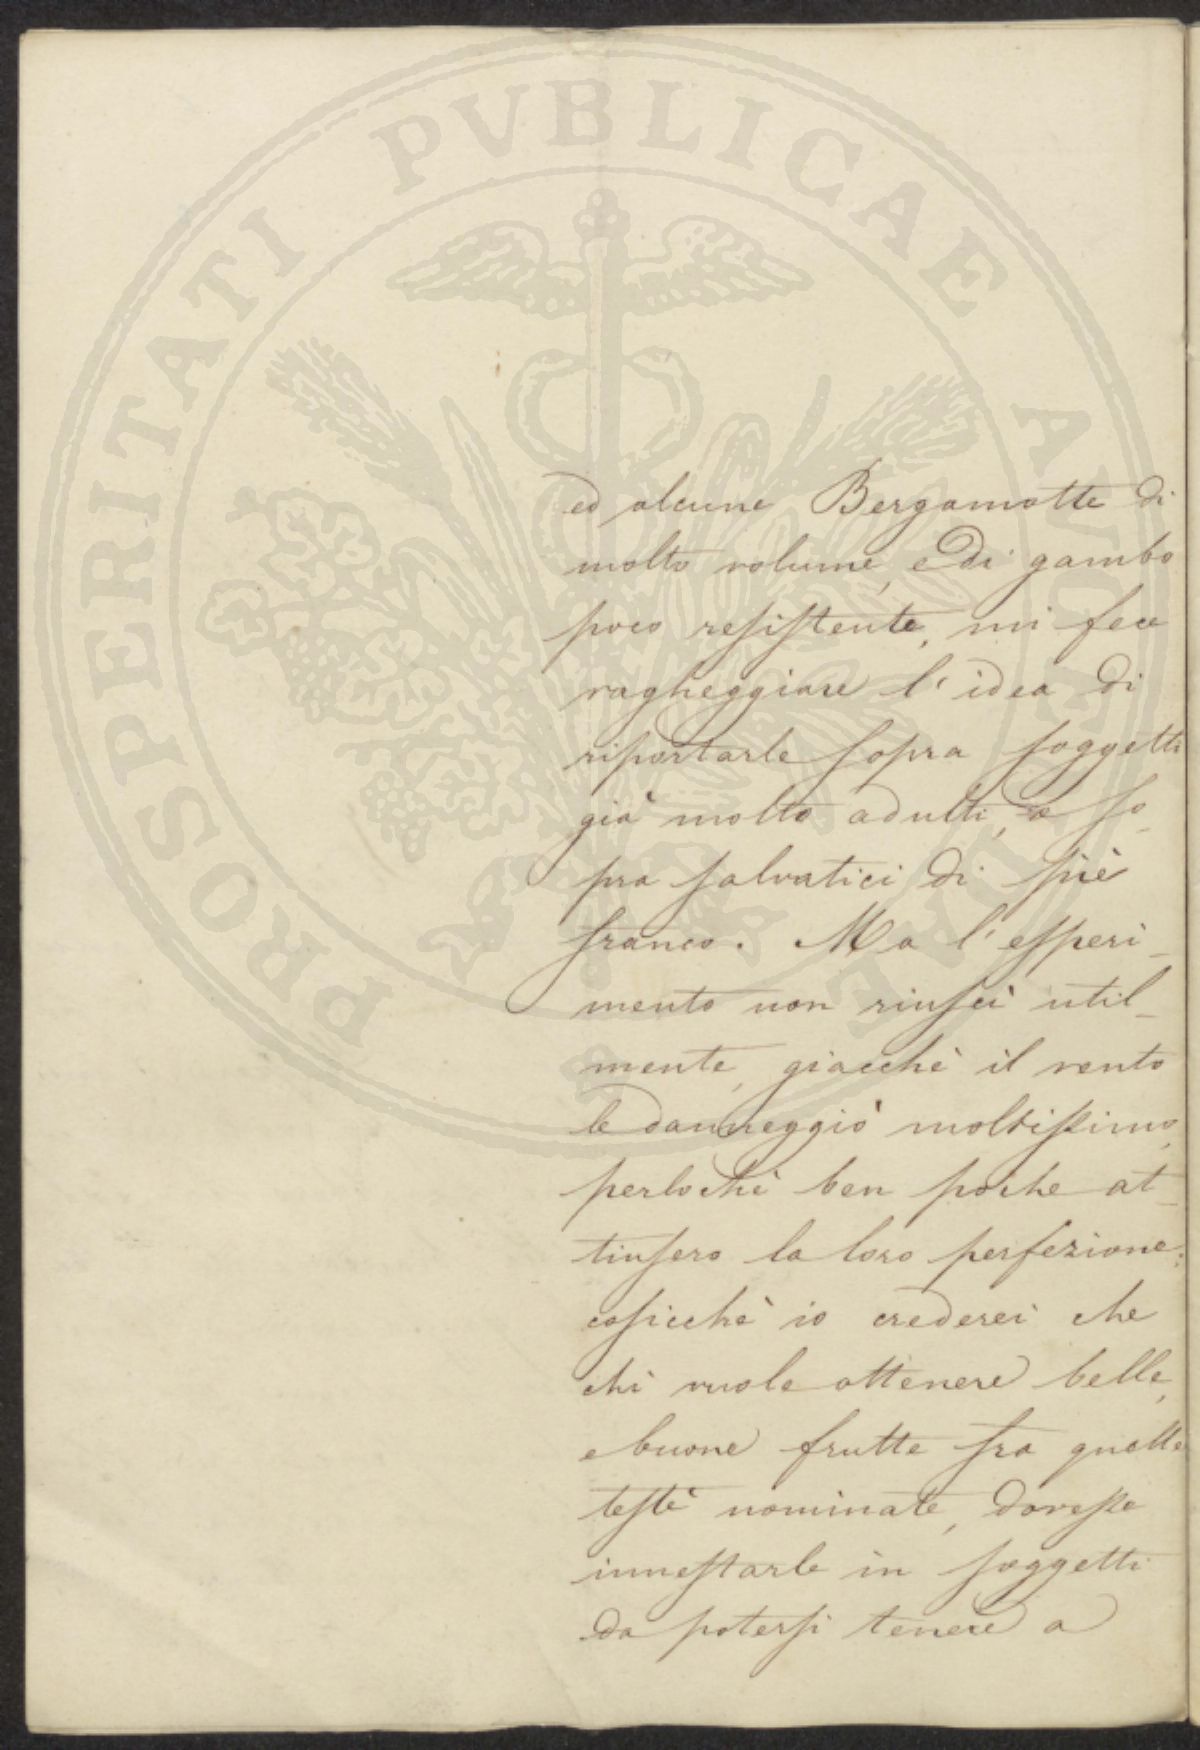 PROSPERITATI PVBLICAE AVGENDAE
ed alcune Bergamotte di
molto volume, e di gambo
poco resistente, mi fece
vagheggiare l'idea di
riportarle sopra soggetti
già molto adulti, e so-
pra salvatici di piè
franco. Ma l'esperi-
mento non riuscì util-
mente, giacchè il vento
le danneggiò moltissimo,
perlochè ben poche at-
tinsero la loro perfezione;
cosicchè io crederei che
chi vuole ottenere belle,
e buone frutte fra quelle
testè nominate, dovesse
innestarle in soggetti
da potersi tenere a